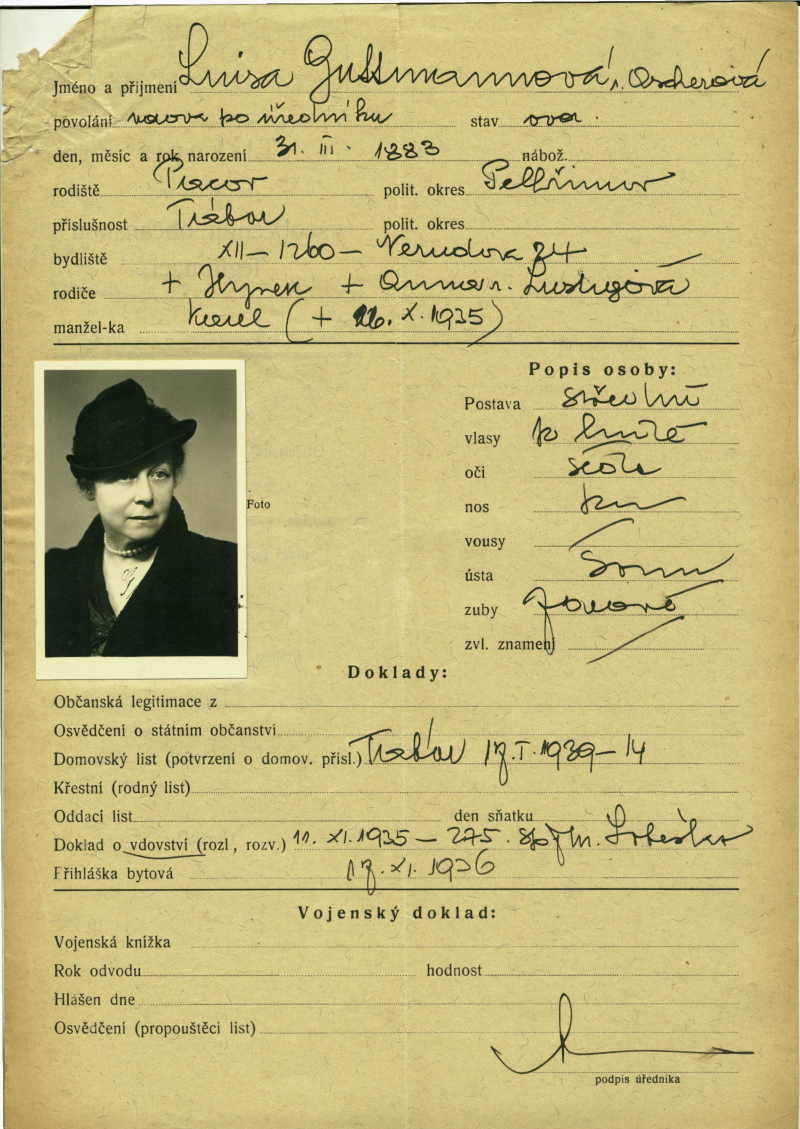 Jméno a přijmení Luisa Guttmannová r. Ascherová
povolání vdova po úředníku stav ovd.
den, měsíc a rok narození 31. III. 1883 nábož.
rodiště Pacov polit. okres Pelhřimov
příslušnost Tábor polit. okres
bydliště XII – 1260 – Nerudova 24
rodiče + Hynek + Anna r. Lustigová
manžel-ka Karel (+ 26. X. 1935)
Popis osoby:
Postava střední
vlasy
oči šedé
nos
Foto
vousy
ústa
zuby
zvl. znamení
Doklady:
Občanská legitimace z
Osvědčení o státním občanství
Domovský list (potvrzení o domov. přísl.) Tábor 17. I. 1939 – 14
Křestní (rodný list)
Oddací list den sňatku
Doklad o vdovství (rozl, rozv.) 11. XI. 1935 – 275.
Přihláška bytová 17. XI. 1936
Vojenský doklad:
Vojenská knížka
Rok odvodu hodnost
Hlášen dne
Osvědčení (propouštěcí list)
podpis úředníka